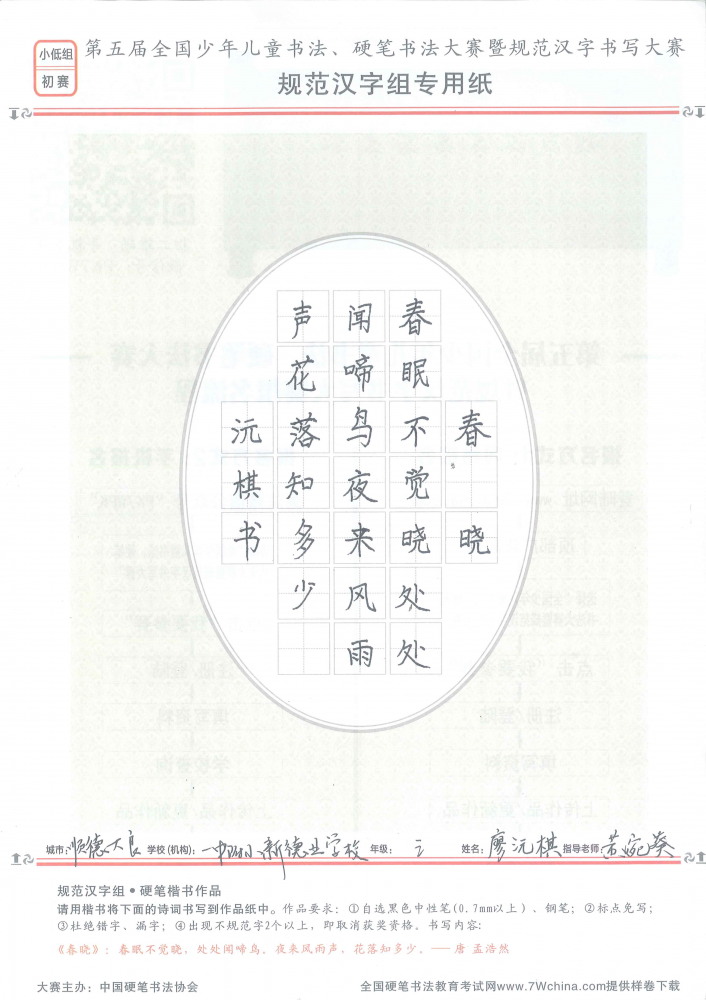 小低组
初赛
第五届全国少年儿童书法、硬笔书法大赛暨规范汉字书写大赛
规范汉字组专用纸
春晓
春眠不觉晓处处
闻啼鸟夜来风雨
声花落知多少
沅棋书
城市：顺德大良 学校(机构)： 年级：三 姓名：廖沅棋 指导老师：黄宛葵
规范汉字组●硬笔楷书作品
请用楷书将下面的诗词书写到作品纸中。作品要求：①自选黑色中性笔(0.7mm以上)、钢笔；②标点免写；
③杜绝错字、漏字；④出现不规范字2个以上，即取消获奖资格。书写内容：
《春晓》：春眠不觉晓，处处闻啼鸟。夜来风雨声，花落知多少。——唐 孟浩然
大赛主办：中国硬笔书法协会
全国硬笔书法教育考试网www.7Wchina.com提供样卷下载